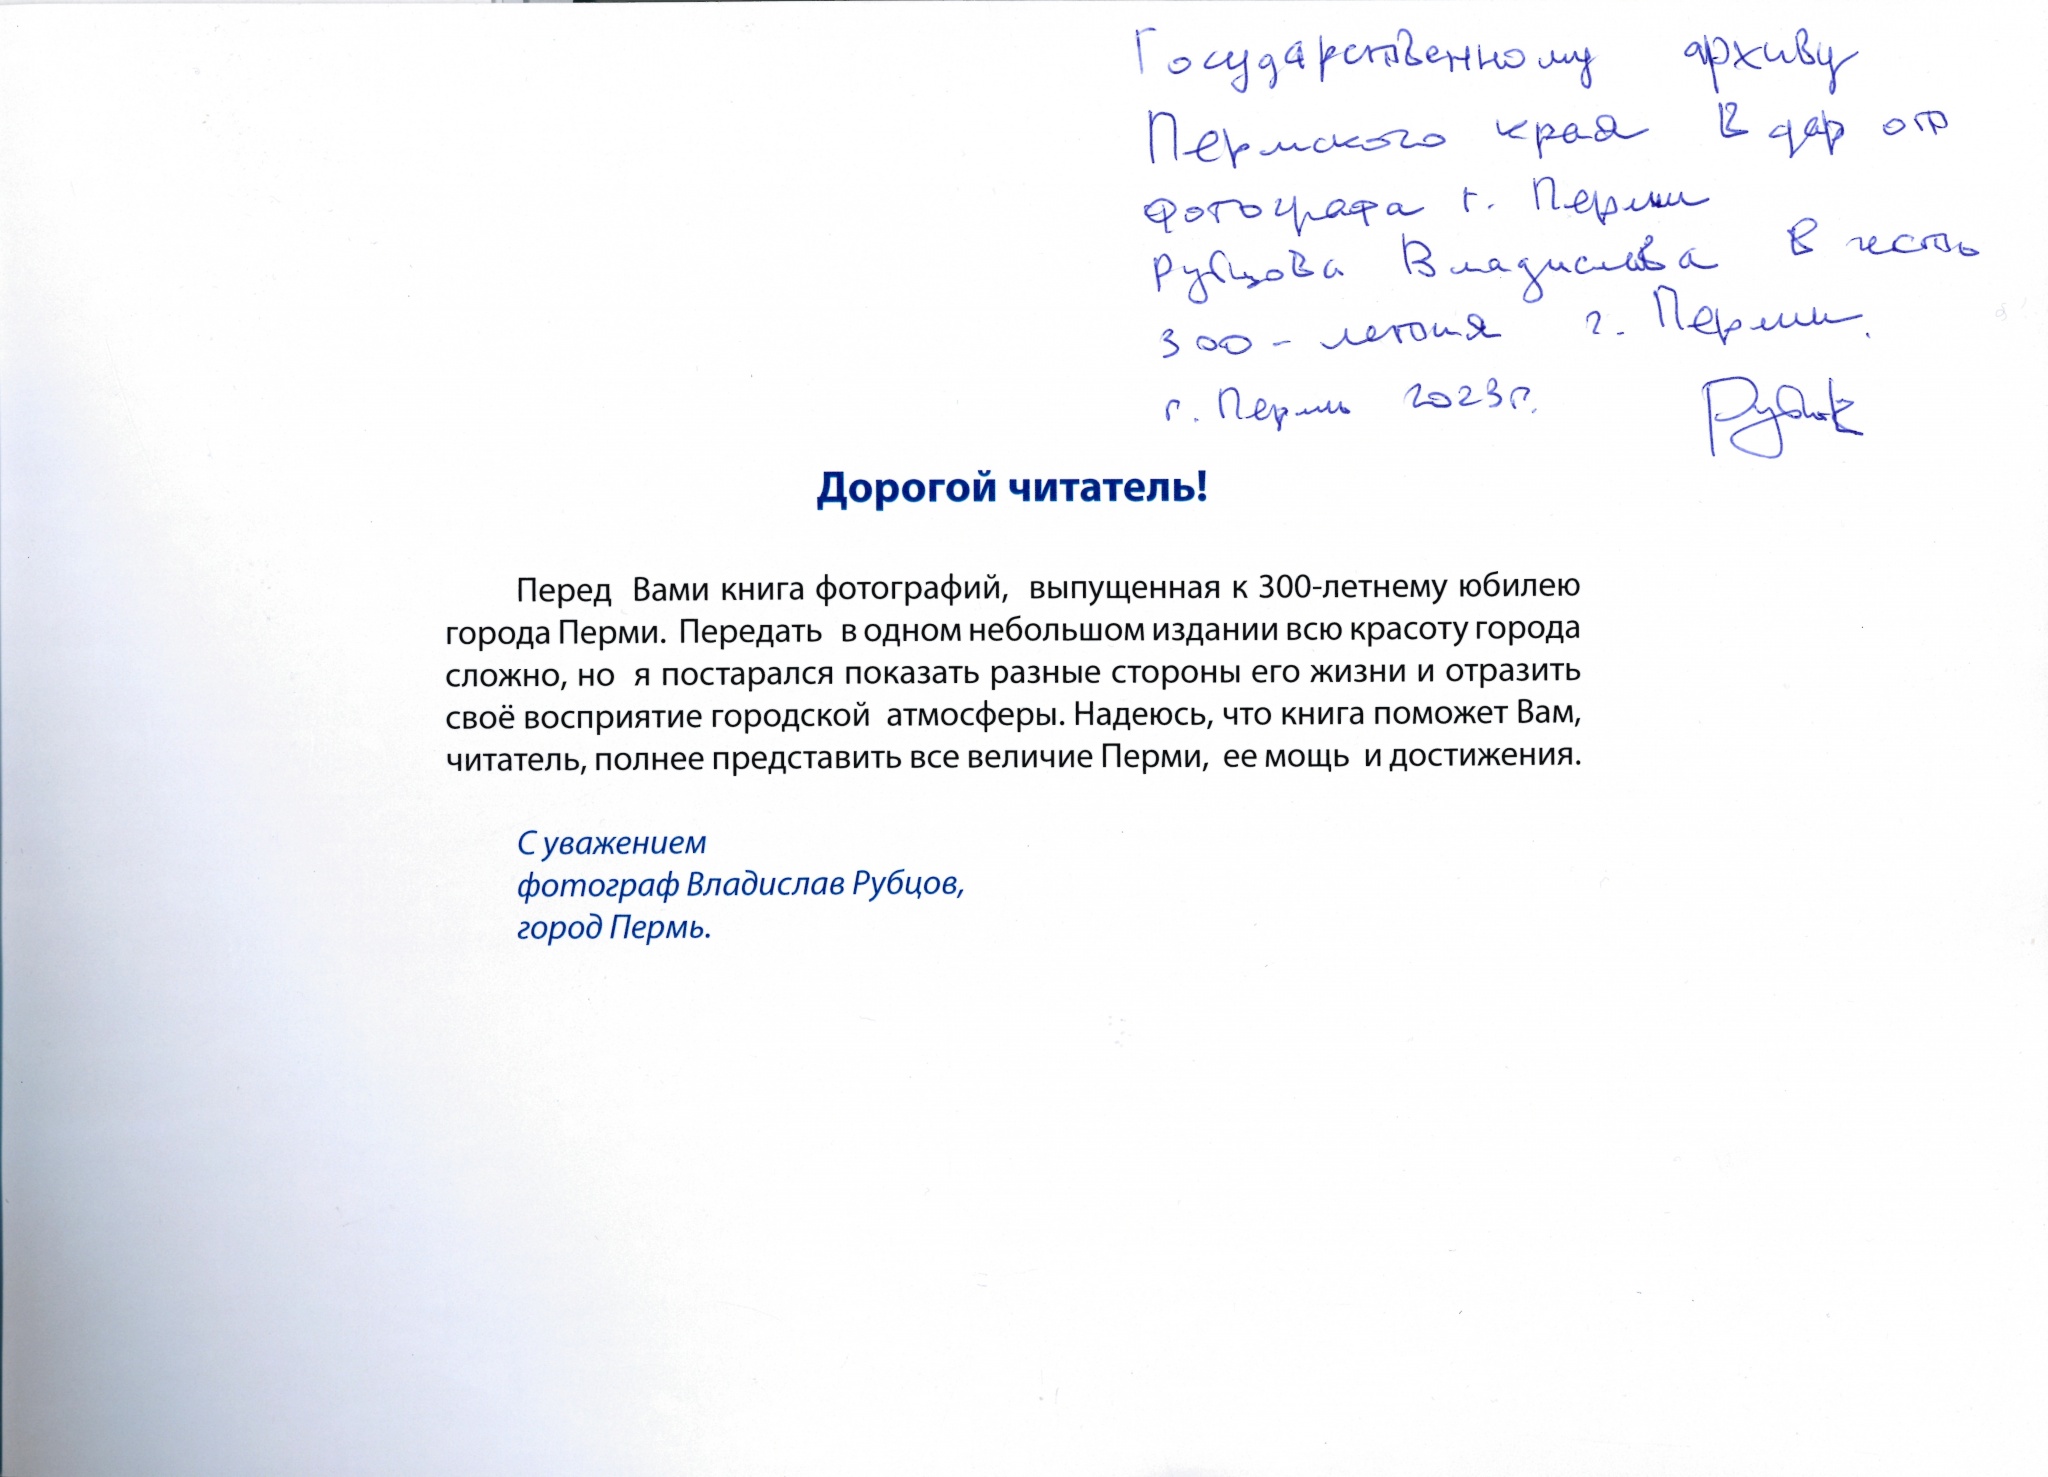 Государственному архиву
Пермского края в дар от
фотографа г. Перми
Рубцова Владислава в честь
300-летия г. Перми.
г. Пермь 2023г.
Дорогой читатель!
Перед Вами книга фотографий, выпущенная к 300-летнему юбилею
города Перми. Передать в одном небольшом издании всю красоту города
сложно, но я постарался показать разные стороны его жизни и отразить
своё восприятие городской атмосферы. Надеюсь, что книга поможет Вам,
читатель, полнее представить все величие Перми, ее мощь и достижения.
С уважением
фотограф Владислав Рубцов,
город Пермь.